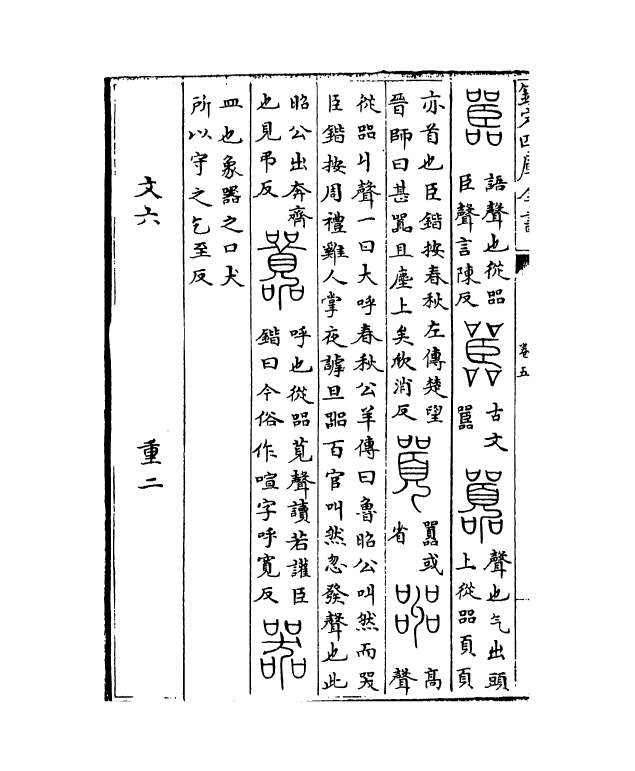 欽定四庫全書
卷五
嚚
語聲也從㗊
臣聲言陳反
𠾂
古文
嚚
囂
聲也气出頭
上從㗊頁頁
亦首也臣鍇按春秋左傳楚望
晉師曰甚囂且塵上矣欣消反
囂或
省
嘂
高
聲
從㗊丩聲一曰大呼春秋公羊傳曰魯昭公叫然而哭
臣鍇按周禮雞人掌夜謼旦嘂百官叫然忽發聲也此
昭公出奔齊
也見弔反
呼也從㗊萈聲讀若讙臣
鍇曰今俗作喧字呼寬反
器
皿也象器之口犬
所以守之乞至反
文六
重二